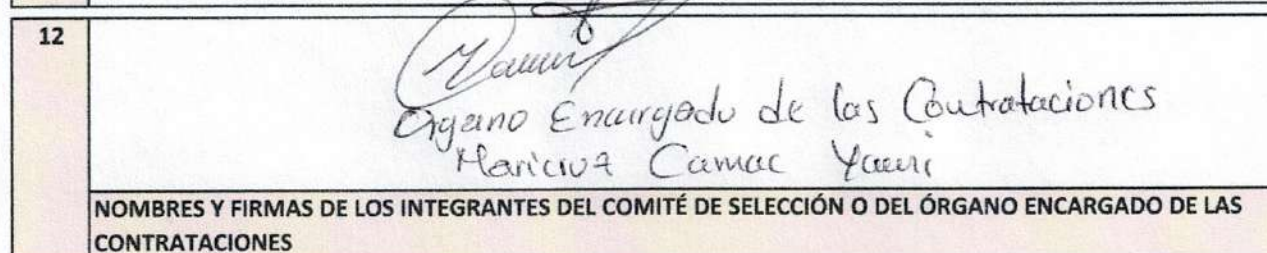 12
Organo Encargado de las Contrataciones
Maricruz Camac Yauri
NOMBRES Y FIRMAS DE LOS INTEGRANTES DEL COMITÉ DE SELECCIÓN O DEL ÓRGANO ENCARGADO DE LAS
CONTRATACIONES